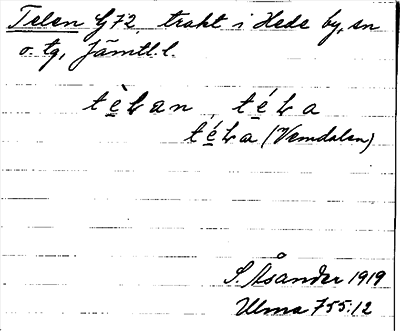 Telen G72, trakt i Hede by, sn
o. tg, Jämtl. l.
tèḷan, téḷa
téḷa (Vemdalen)
S. Åsander 1919
Ulma 755:12